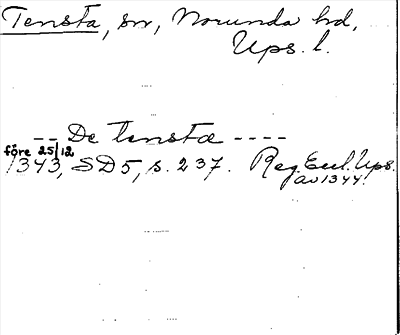 Tensta, sn, Norunda hd,
Ups. l.
-- De tenstæ ----
före 25/12
1343, SD5, s. 237. Reg. Eccl. Ups.
av 1344.